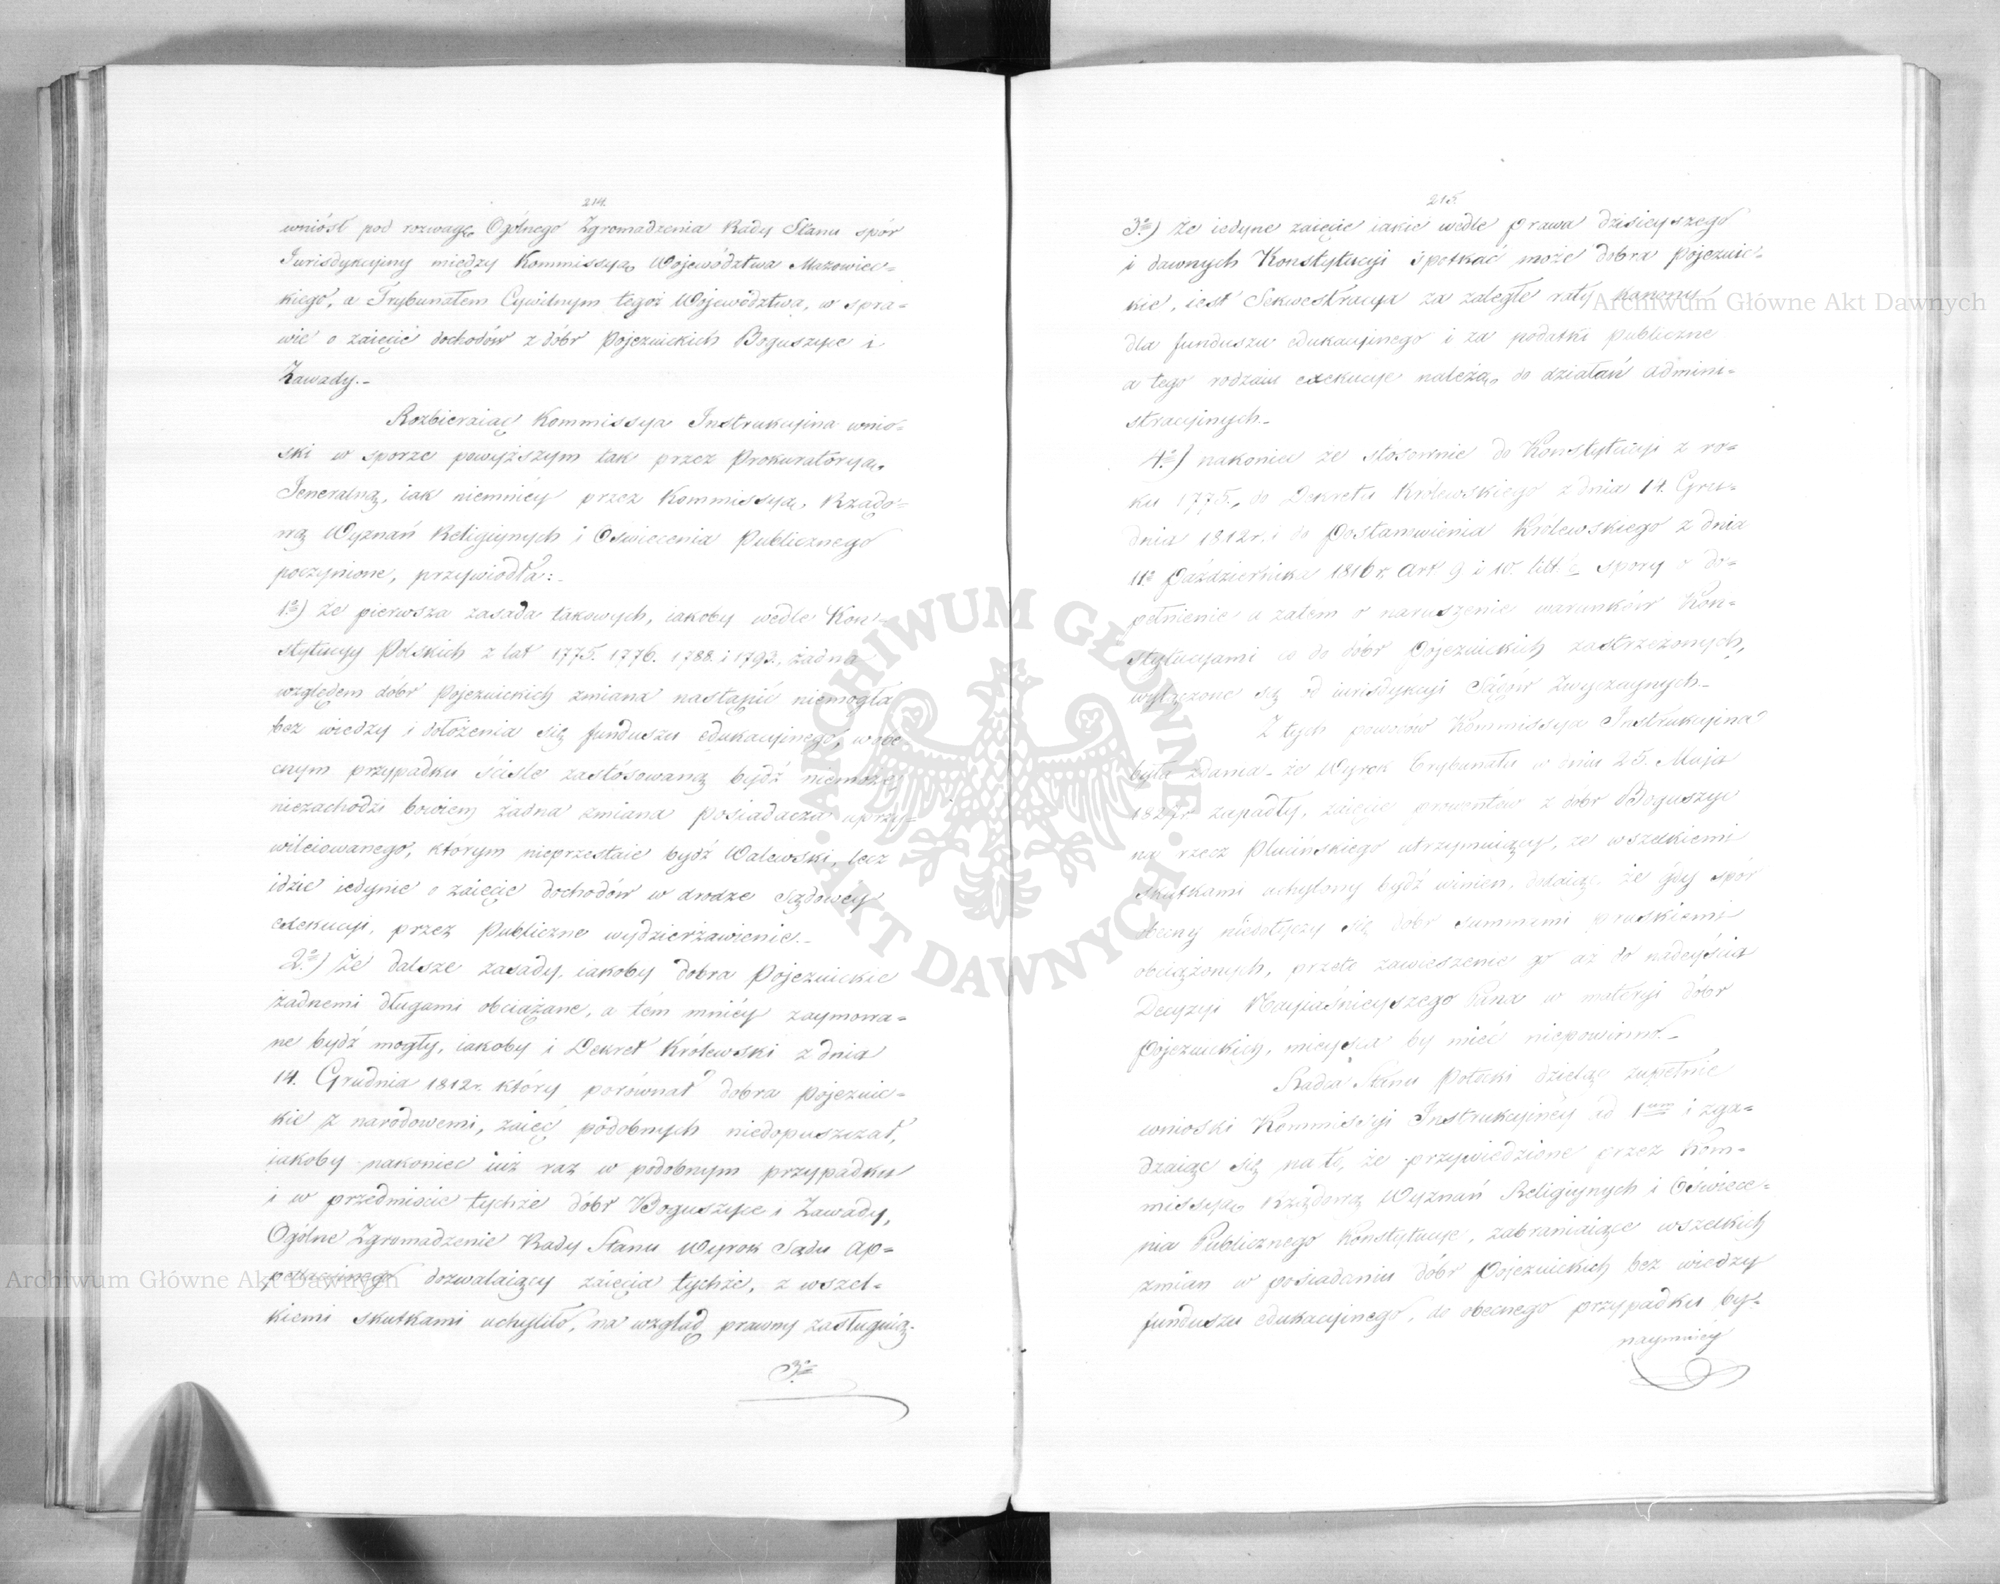 214.
wniósł pod rozwagę Ogólnego Zgromadzenia Rady Stanu spór
Jurisdykcyiny między Kommissyą Województwa Mazowiec-
kiego, a Trybunałem Cywilnym tegoż Województwa, w spra-
wie o zaięcie dochodów z dóbr Pojezuickich Boguszyce i
Zawady.-
Rozbieraiąc Kommissya Instrukcyina wnio-
ski w sporze powyższym tak przez Prokuratoryą
Jeneralną, iak niemniey przez Kommissyą Rządo-
wą Wyznań Religiynych i Oświecenia Publicznego
poczynione, przywiodła:-
1º) że pierwsza zasada takowych, iakoby wedle Kon-
stytucyy Polskich z lat 1775. 1776. 1788. i 1793., żadna
względem dóbr Pojezuickich zmiana nastąpić niemogła
bez wiedzy i dołożenia się funduszu edukacyinego, w obe-
cnym przypadku ściśle zastósowaną bydź niemoże,
niezachodzi bowiem żadna zmiana posiadacza uprzy-
wileiowanego, którym nieprzestaie bydź Walewski, lecz
idzie iedynie o zaięcie dochodów w drodze Sądowéy
exekucyi, przez publiczne wydzierżawienie.-
2º) Że dalsze zasady, iakoby dobra Pojezuickie
żadnemi długami obciążane, a tém mniéy zaymowa-
ne bydź mogły, iakoby i Dekret Królewski z dnia
14. Grudnia 1812r. który porównał dobra Pojezuic-
kie z narodowemi, zaięć podobnych niedopuszczał,
iakoby nakoniec iuż raz w podobnym przypadku
i w przedmiocie tychże dóbr Boguszyce i Zawady,
Ogólne Zgromadzenie Rady Stanu Wyrok Sądu Ap-
pelacyinego dozwalaiący zaięcia tychże, z wszel-
kiemi skutkami uchyliło, na wzgląd prawny zasługuią.
3º
215.
3º) Że iedyne zaięcie iakie wedle prawa dzisieyszego
i dawnych Konstytucyi spotkać może dobra Pojezuic-
kie, iest Sekwestracya za zaległe raty kanonu
dla funduszu edukacyinego i za podatki publiczne
a tego rodzaiu exekucye należą do działań admini-
stracyinych.-
4º) nakoniec że stósownie do Konstytucyi z ro-
ku 1775., do Dekretu Królewskiego z dnia 14. Gru-
dnia 1812r. i do Postanowienia Królewskiego z dnia
11º Października 1816r. Art 9 i 10. litt: c, spory o do-
pełnienie a zatém o naruszenie warunków Kon-
stytucyami co do dóbr Pojezuickich zastrzeżonych,
wyłączone są od iurisdykcyi Sądów Zwyczaynych.-
Z tych powodów Kommissya Instrukcyina
była zdania - że Wyrok Trybunału w dniu 25. Maja
zapadły, zaięcie prowentów z dóbr Boguszyc
na rzecz Plucińskiego utrzymuiący, ze wszelkiemi
skutkami uchylony bydź winien, dodaiąc, że gdy spór
obecny niedotyczy się dóbr summami pruskiemi
obciążonych, przeto zawieszenie go aż do nadeyścia
Decyzyi Nayiaśnieyszego Pana w materyi dóbr
Pojezuickich, mieysca by mieć niepowinno.-
Radca Stanu Potocki dzieląc zupełnie
wnioski Kommissyi Instrukcyinéy ad 1um i zga-
dzaiąc się na to, że przywiedzione przez Kom-
missyą Rządową Wyznań Religiynych i Oświece-
nia Publicznego Konstytucye, zabraniaiące wszelkich
zmian w posiadaniu dóbr Pojezuickich bez wiedzy
funduszu edukacyinego, do obecnego przypadku by-
naymniéy
Archiwum Główne Akt Dawnych
Archiwum Główne Akt Dawnych
ARCHIWUM GŁÓWNE
AKT DAWNYCH